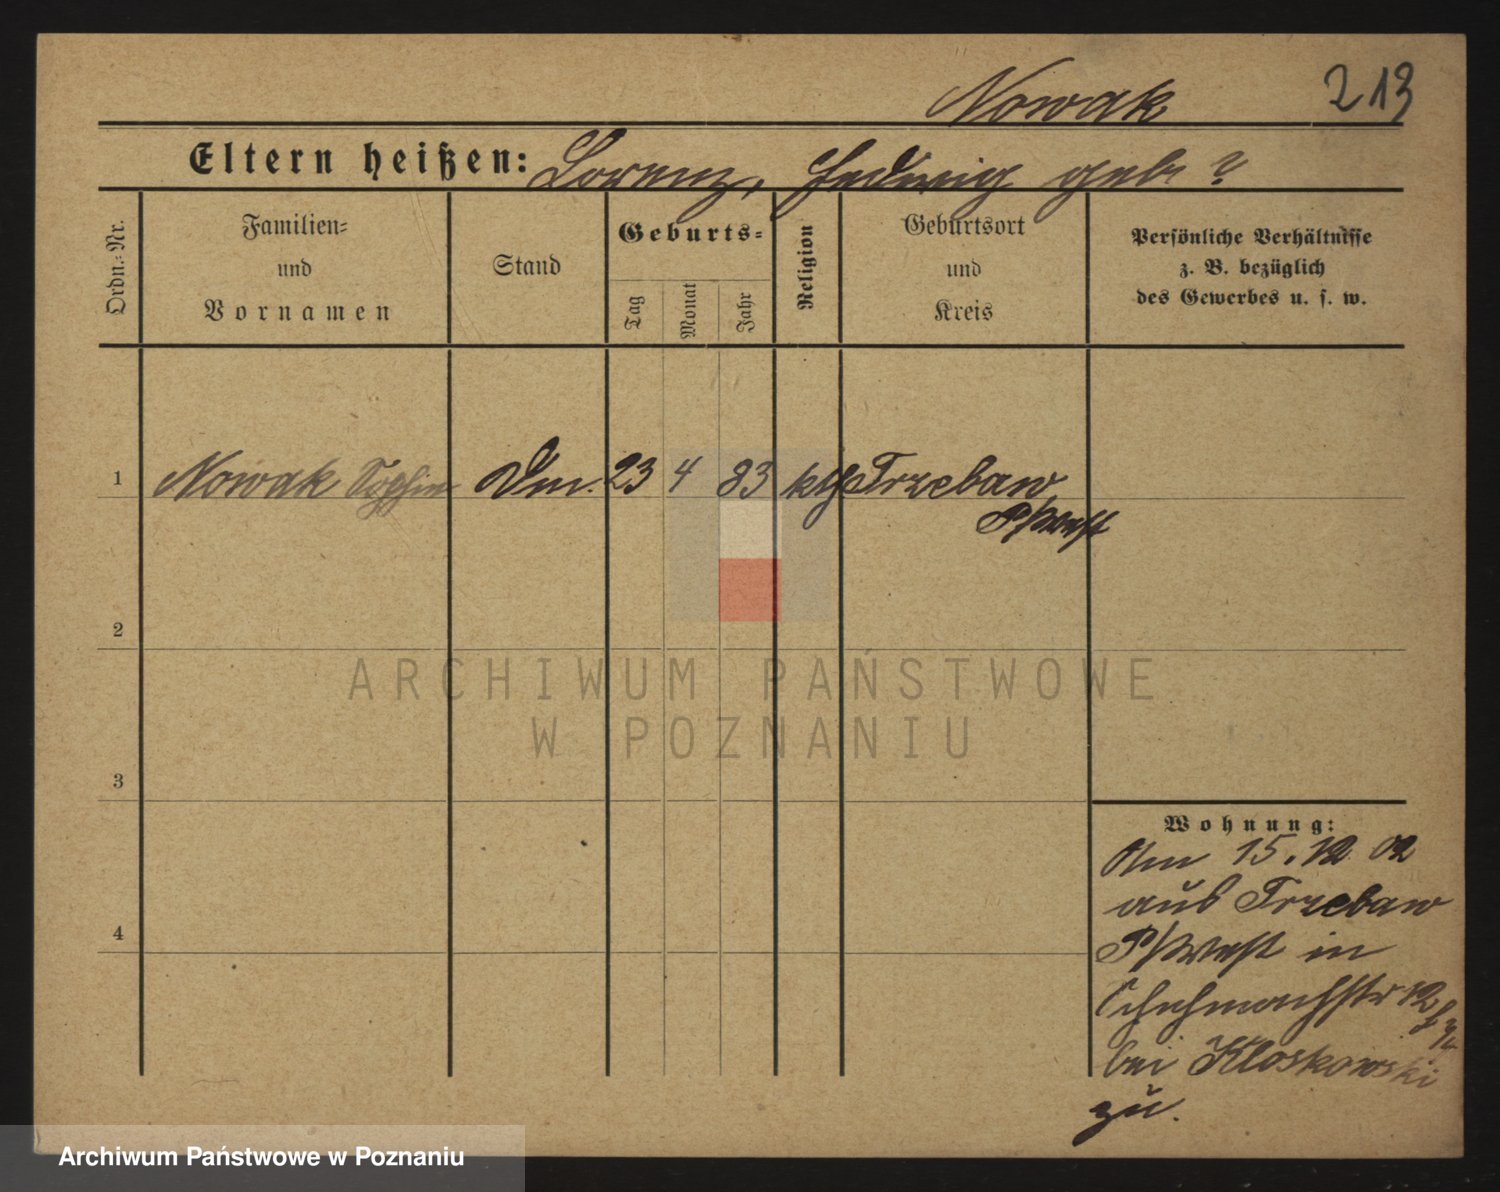 Nowak 213
Eltern heißen: Lorenz, Hedwig geb. ?
Ordn.-Nr.
Familien-
und
Vornamen
Stand
Geburts-
Tag
Monat
Jahr
Religion
Geburtsort
und
Kreis
Persönliche Verhältnisse
z. B. bezüglich
des Gewerbes u. s. w.
1 Nowak Sophie 23 4 83 kth Trzebaw
P/West
2
3
4
Wohnung:
Am 15. 12 02
aus Trzebaw
P/West in
Schuhmachstr 12
bei Kloskowski
zu.
ARCHIWUM PAŃSTWOWE
W POZNANIU
Archiwum Państwowe w Poznaniu